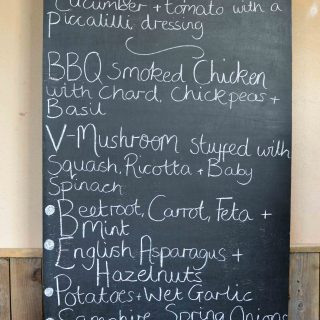 Cucumber + tomato with a
piccalilli dressing
BBQ Smoked Chicken
with Chard, Chickpeas +
Basil
V-Mushroom stuffed with
Squash, Ricotta + Baby
Spinach
Beetroot, Carrot, Feta +
Mint
English Asparagus +
Hazelnuts
Potatoes + Wet Garlic
Samphire, Spring Onions